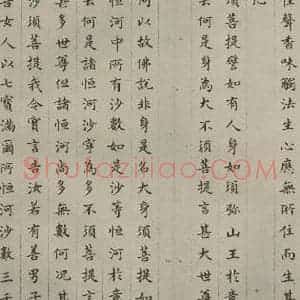 生聲香味觸法生心應無所住而生
心
須菩提譬如有人身如須弥山王於意
云何是身為大不須菩提言甚大世尊
何以故佛說非身是名大身
恒河中所有沙數如是沙等恒河於意
云何是諸恒河沙寧為多不須菩提言
甚多世尊但諸恒河尚多無數何況其
沙須菩提我今實言告汝若有善男子
善女人以七寶滿尒所恒河沙數三千
Shufaziliao.com